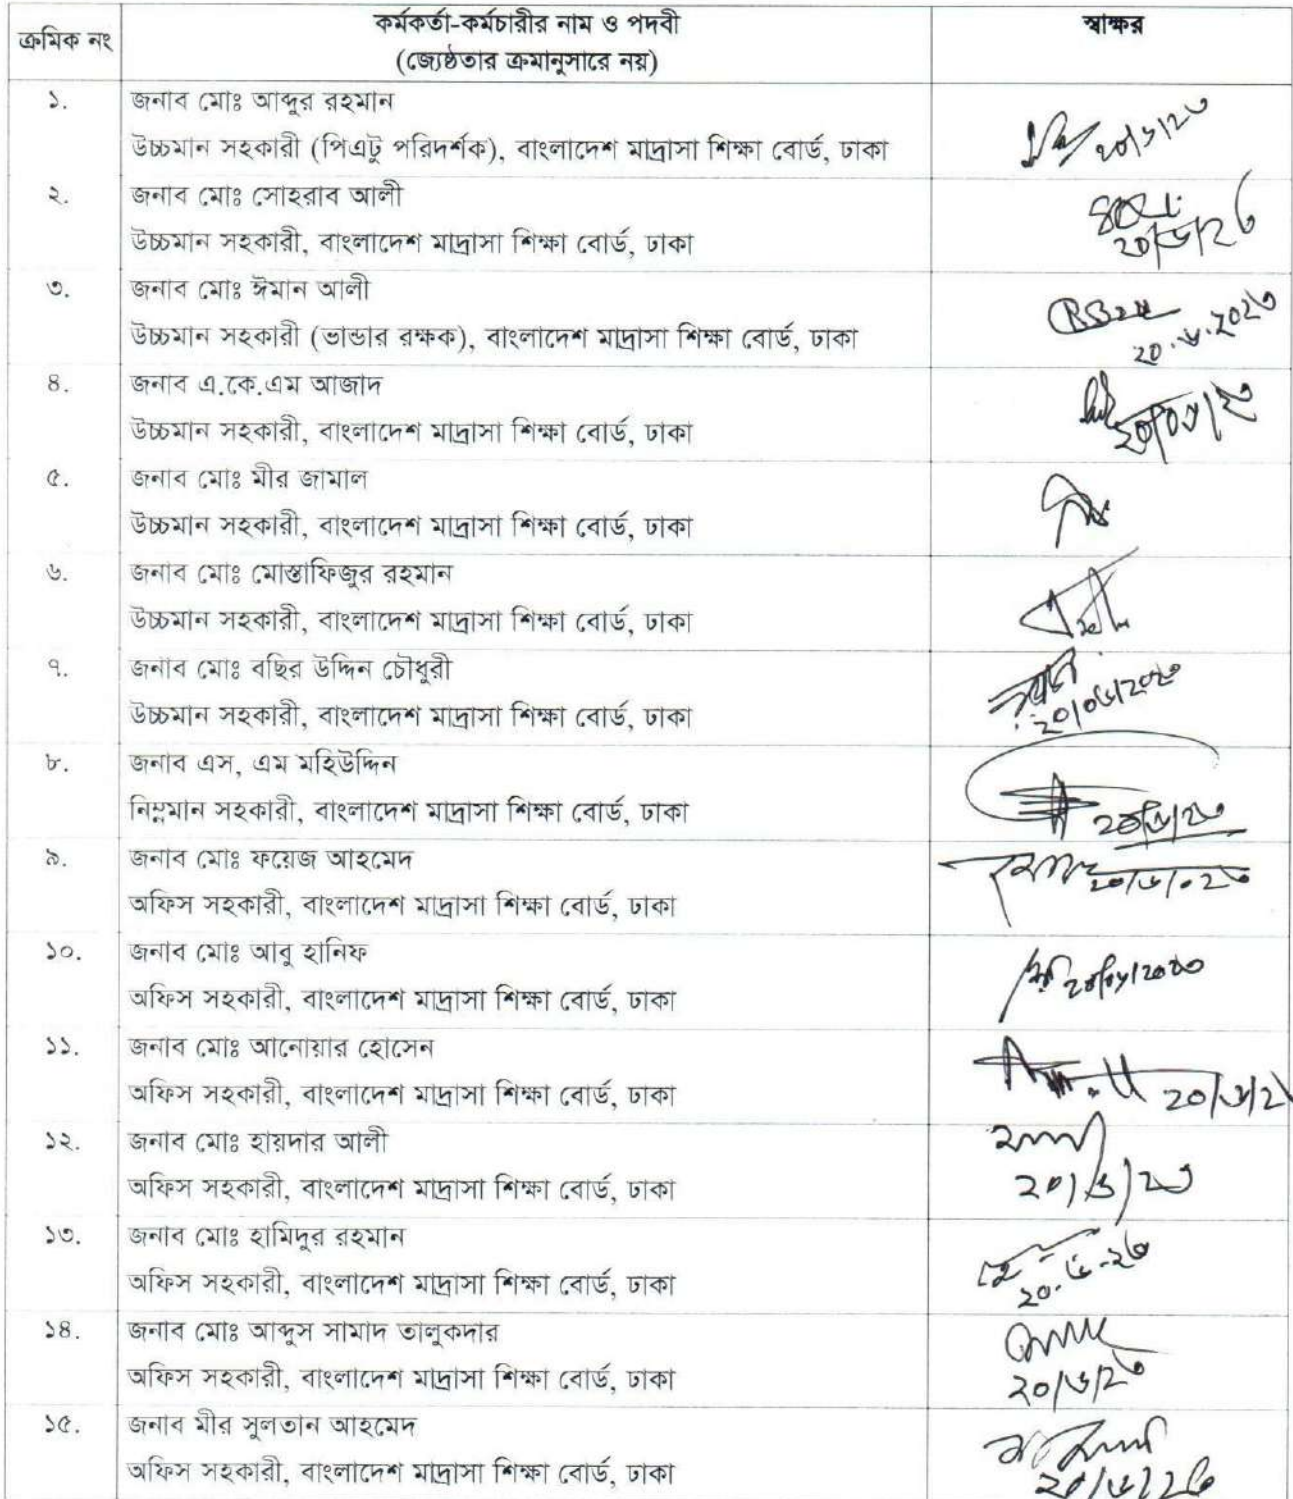 ক্রমিক নং
কর্মকর্তা-কর্মচারীর নাম ও পদবী
(জ্যেষ্ঠতার ক্রমানুসারে নয়)
স্বাক্ষর
১.
জনাব মোঃ আব্দুর রহমান
উচ্চমান সহকারী (পিএটু পরিদর্শক), বাংলাদেশ মাদ্রাসা শিক্ষা বোর্ড, ঢাকা
২০/৬/২৩
২.
জনাব মোঃ সোহরাব আলী
উচ্চমান সহকারী, বাংলাদেশ মাদ্রাসা শিক্ষা বোর্ড, ঢাকা
২০/৬/২৩
৩.
জনাব মোঃ ঈমান আলী
উচ্চমান সহকারী (ভান্ডার রক্ষক), বাংলাদেশ মাদ্রাসা শিক্ষা বোর্ড, ঢাকা
২০.৬.২০২৩
৪.
জনাব এ.কে.এম আজাদ
উচ্চমান সহকারী, বাংলাদেশ মাদ্রাসা শিক্ষা বোর্ড, ঢাকা
২০/০৬/২৩
৫.
জনাব মোঃ মীর জামাল
উচ্চমান সহকারী, বাংলাদেশ মাদ্রাসা শিক্ষা বোর্ড, ঢাকা
৬.
জনাব মোঃ মোস্তাফিজুর রহমান
উচ্চমান সহকারী, বাংলাদেশ মাদ্রাসা শিক্ষা বোর্ড, ঢাকা
৭.
জনাব মোঃ বছির উদ্দিন চৌধুরী
উচ্চমান সহকারী, বাংলাদেশ মাদ্রাসা শিক্ষা বোর্ড, ঢাকা
২০/০৬/২০২৩
৮.
জনাব এস, এম মহিউদ্দিন
নিম্নমান সহকারী, বাংলাদেশ মাদ্রাসা শিক্ষা বোর্ড, ঢাকা
২০/৬/২৩
৯.
জনাব মোঃ ফয়েজ আহমেদ
অফিস সহকারী, বাংলাদেশ মাদ্রাসা শিক্ষা বোর্ড, ঢাকা
২০/৬/০২৩
১০.
জনাব মোঃ আবু হানিফ
অফিস সহকারী, বাংলাদেশ মাদ্রাসা শিক্ষা বোর্ড, ঢাকা
২০/০৬/২০২৩
১১.
জনাব মোঃ আনোয়ার হোসেন
অফিস সহকারী, বাংলাদেশ মাদ্রাসা শিক্ষা বোর্ড, ঢাকা
১২.
জনাব মোঃ হায়দার আলী
অফিস সহকারী, বাংলাদেশ মাদ্রাসা শিক্ষা বোর্ড, ঢাকা
২০/৬/২৩
১৩.
জনাব মোঃ হামিদুর রহমান
অফিস সহকারী, বাংলাদেশ মাদ্রাসা শিক্ষা বোর্ড, ঢাকা
২০.৬.২৩
১৪.
জনাব মোঃ আব্দুস সামাদ তালুকদার
অফিস সহকারী, বাংলাদেশ মাদ্রাসা শিক্ষা বোর্ড, ঢাকা
২০/৬/২৩
১৫.
জনাব মীর সুলতান আহমেদ
অফিস সহকারী, বাংলাদেশ মাদ্রাসা শিক্ষা বোর্ড, ঢাকা
২০/৬/২৩